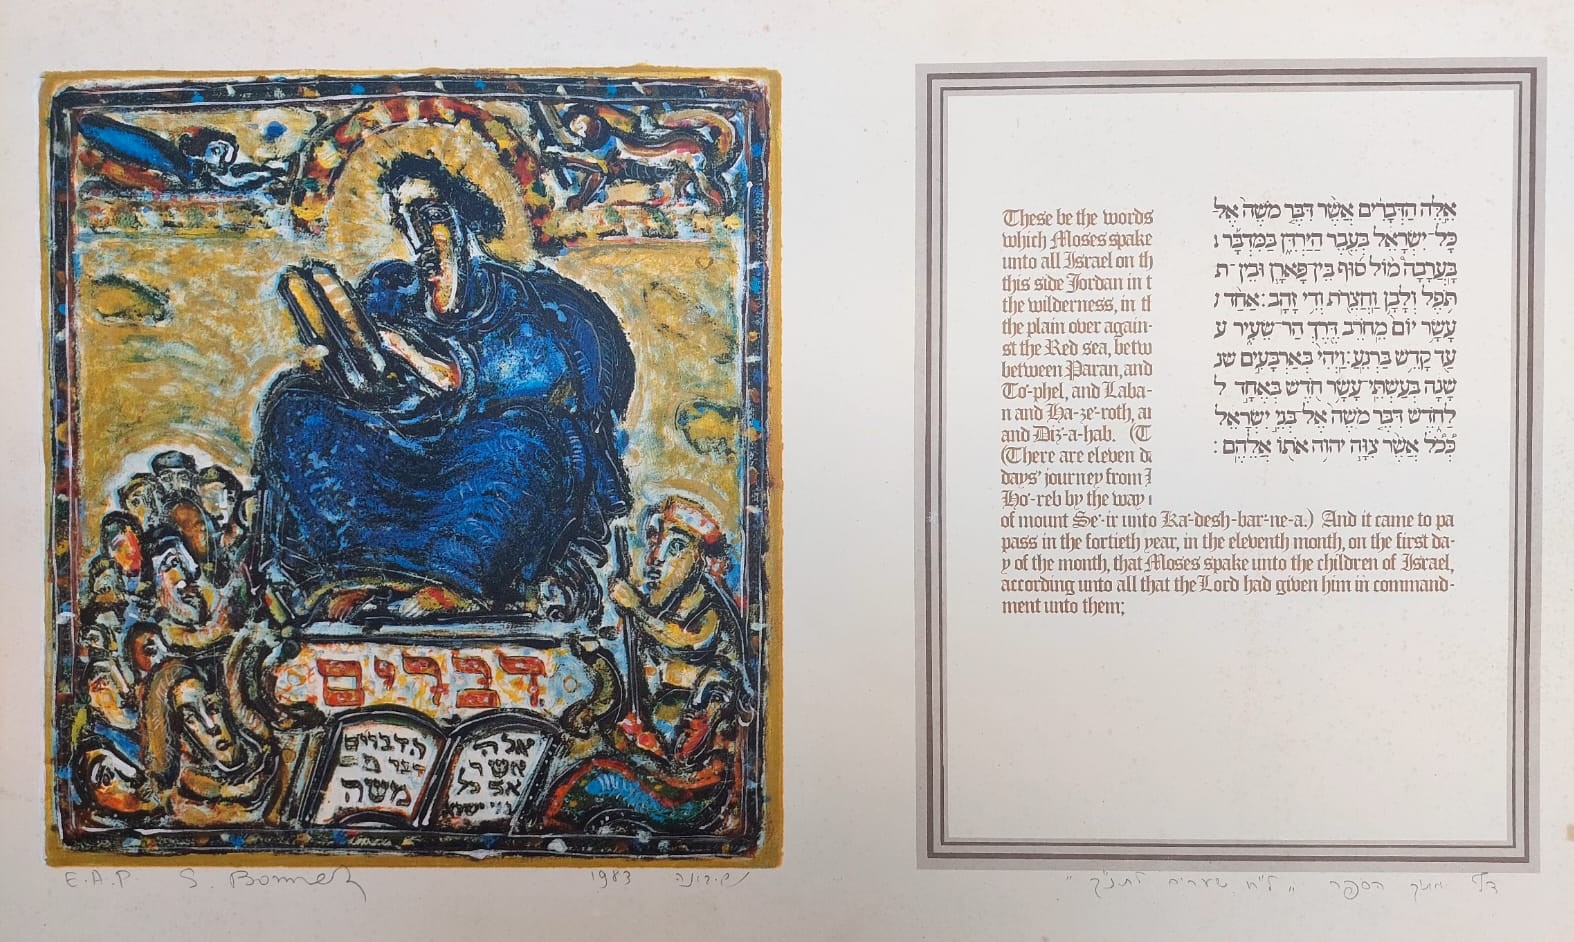 דברים
אלה
אשר
הדברים
משה
E.A.P. S. Bonneh 1983
These be the words
which Moses spake
unto all Israel on th
this side Jordan in t
the wilderness, in th
the plain over again-
st the Red sea, betw
between Paran, and
To-phel, and Laba-
n and Ha-ze-roth, an
and Diz-a-hab. (T
(There are eleven da
days' journey from
Ho-reb by the way
of mount Se-ir unto Ka-desh-bar-ne-a.) And it came to pa
pass in the fortieth year, in the eleventh month, on the first da-
y of the month, that Moses spake unto the children of Israel,
according unto all that the Lord had given him in command-
ment unto them;
אֵלֶּה הַדְּבָרִים אֲשֶׁר דִּבֶּר מֹשֶׁה אֶל־
כָּל־יִשְׂרָאֵל בְּעֵבֶר הַיַּרְדֵּן בַּמִּדְבָּר
בָּעֲרָבָה מוֹל סוּף בֵּין־פָּארָן וּבֵין־ת
תֹּפֶל וְלָבָן וַחֲצֵרֹת וְדִי זָהָב׃ אַחַד
עָשָׂר יוֹם מֵחֹרֵב דֶּרֶךְ הַר־שֵׂעִיר ע
עַד קָדֵשׁ בַּרְנֵעַ׃ וַיְהִי בְּאַרְבָּעִים שנ
שָׁנָה בְּעַשְׁתֵּי־עָשָׂר חֹדֶשׁ בְּאֶחָד ל
לַחֹדֶשׁ דִּבֶּר מֹשֶׁה אֶל־בְּנֵי יִשְׂרָאֵל
כְּכֹל אֲשֶׁר צִוָּה יהוה אֹתוֹ אֲלֵהֶם׃
דף מתוך הספר "ל"ח שערים לתנ"ך"